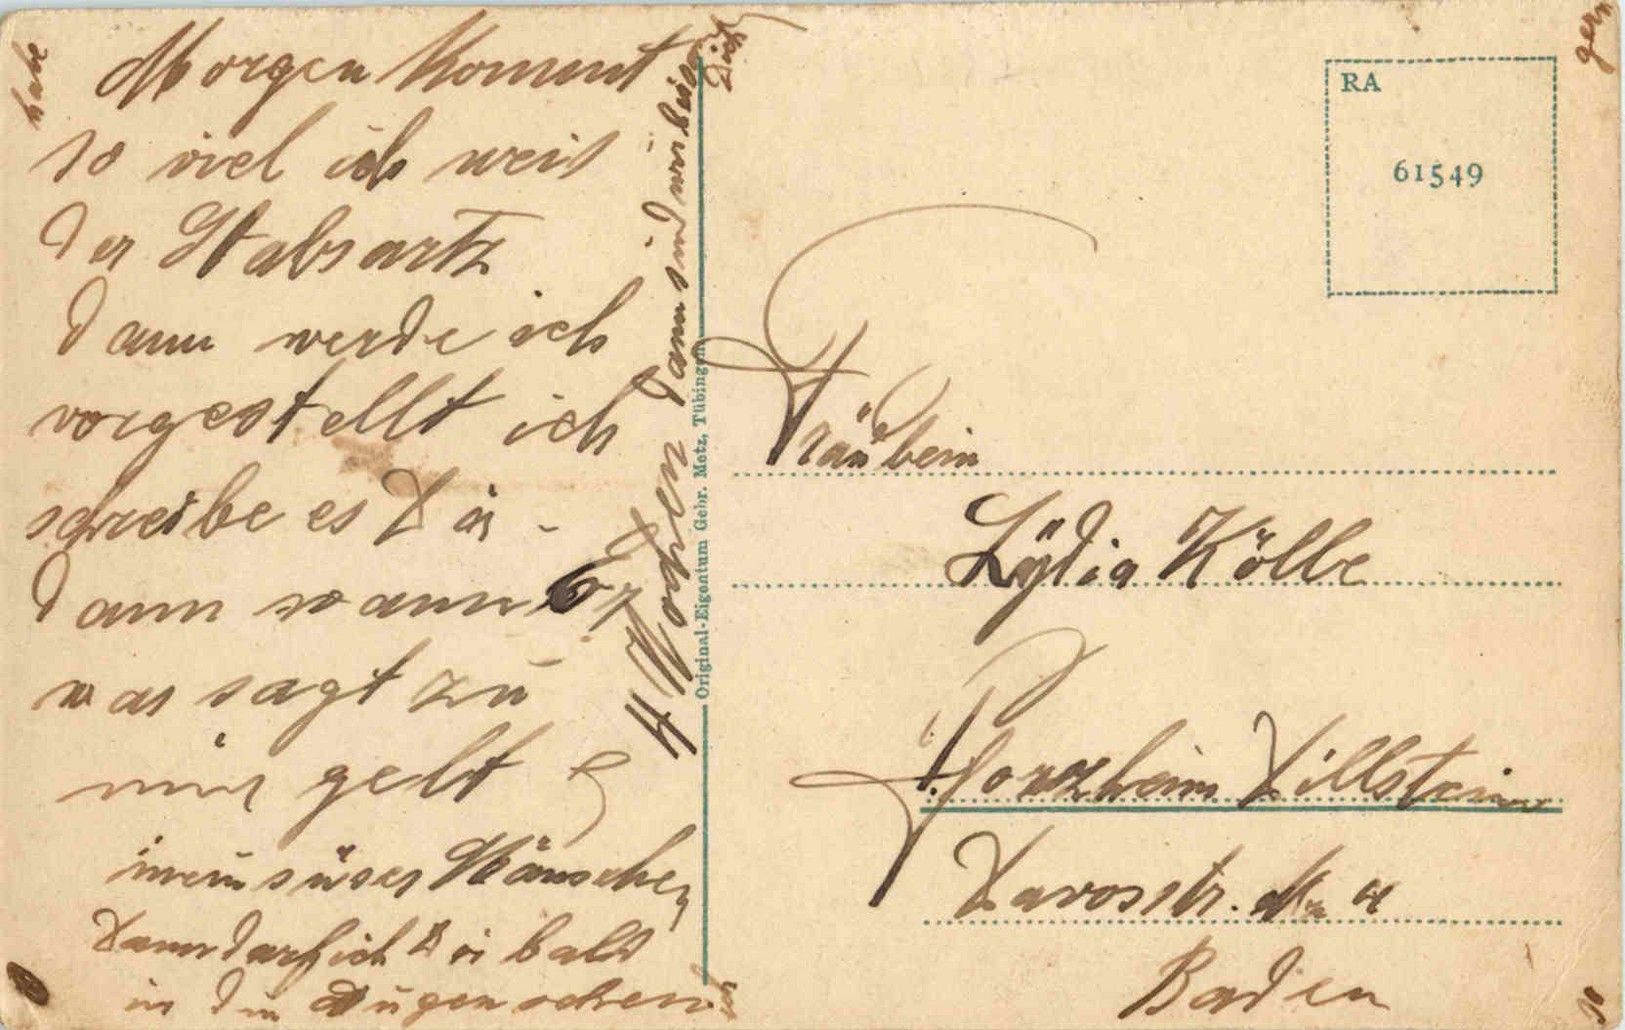 Morgen Kommt
so viel ich weis
der Stabsartz
dann werde ich
vorgestellt ich
schreibe es Dir -
dann so ann
was sagt zu
mir gelt
mein süses Mäuschen
Dann darf ich Dir bald
in die Augen sehen
4 Wochen
dann sind wir
Dich
habe
so
gern
Original-Eigentum Gebr. Metz, Tübingen
RA
61549
Fräulein
Lÿdia Kölle
Pforzheim Dillstein
Davosstr. No 4
Baden